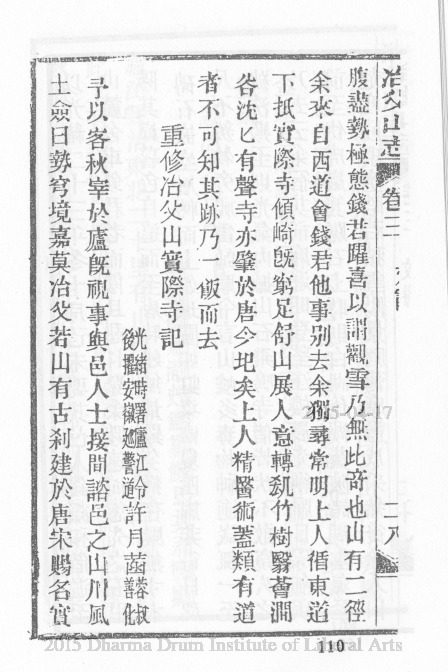 冶父山志 卷三
二八
腹盡勢極態錢君躍喜以謂觀雪乃無此奇也山有二徑
余來自西道會錢君他事別去余獨尋常明上人循東道
下抵實際寺傾崎旣窮足舒山展人意轉
竹樹翳薈澗
谷沈匕有聲寺亦肇於唐今圮矣上人精醫術蓋類有道
者不可知其跡乃一飯而去
重修冶父山實際寺記
光緒時署廬江令許月
蓉叔
後擢安徽廵警道
善化
予以客秋宰於廬旣視事與邑人士接間諮邑之山川風
土僉曰勢穹境嘉莫冶父若山有古刹建於唐宋賜名實
110
2015 Dharma Drum Institute of Liberal Arts